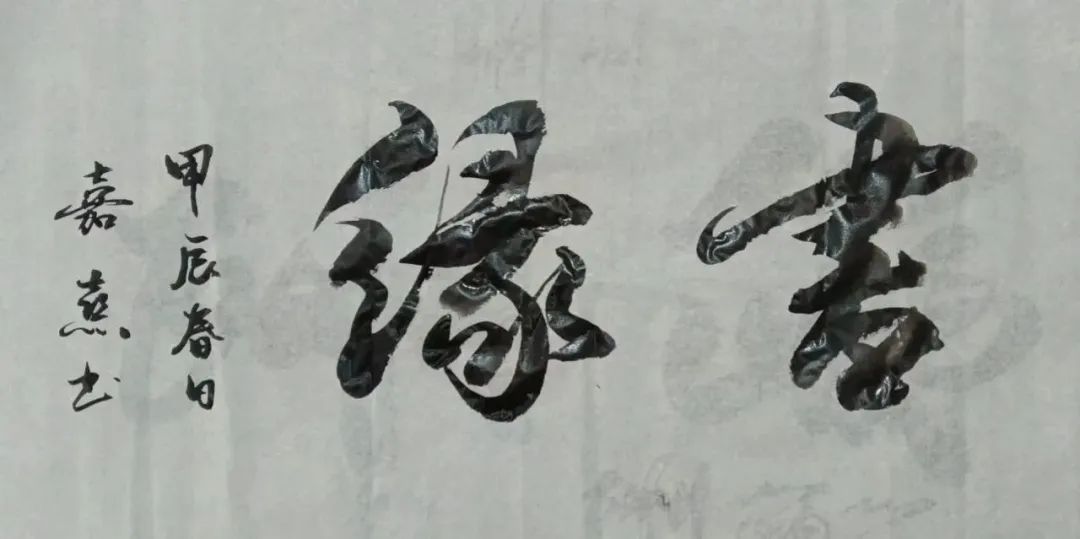 善缘
甲辰春日
嘉熹书